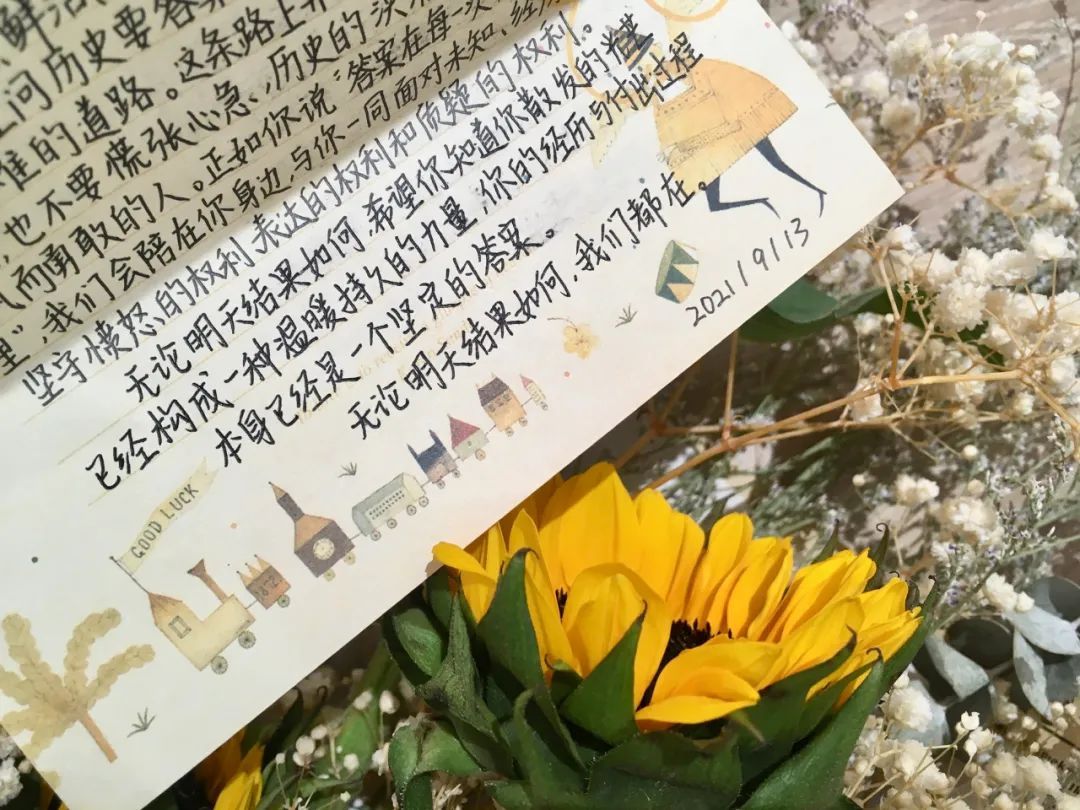 鲜活
问历史要答案
谁的道路。这条路上并
,也不要慌张心急,历史的决
气而勇敢的人。正如你说"答案在每一次
里",我们会陪在你身边,与你一同面对未知、经历
坚守愤怒的权利、表达的权利和质疑的权利。
无论明天结果如何,希望你知道你散发的光芒
已经构成一种温暖持久的力量,你的经历与付出过程
本身已经是一个坚定的答案。
无论明天结果如何,我们都在。
2021/9/13
GOOD LUCK